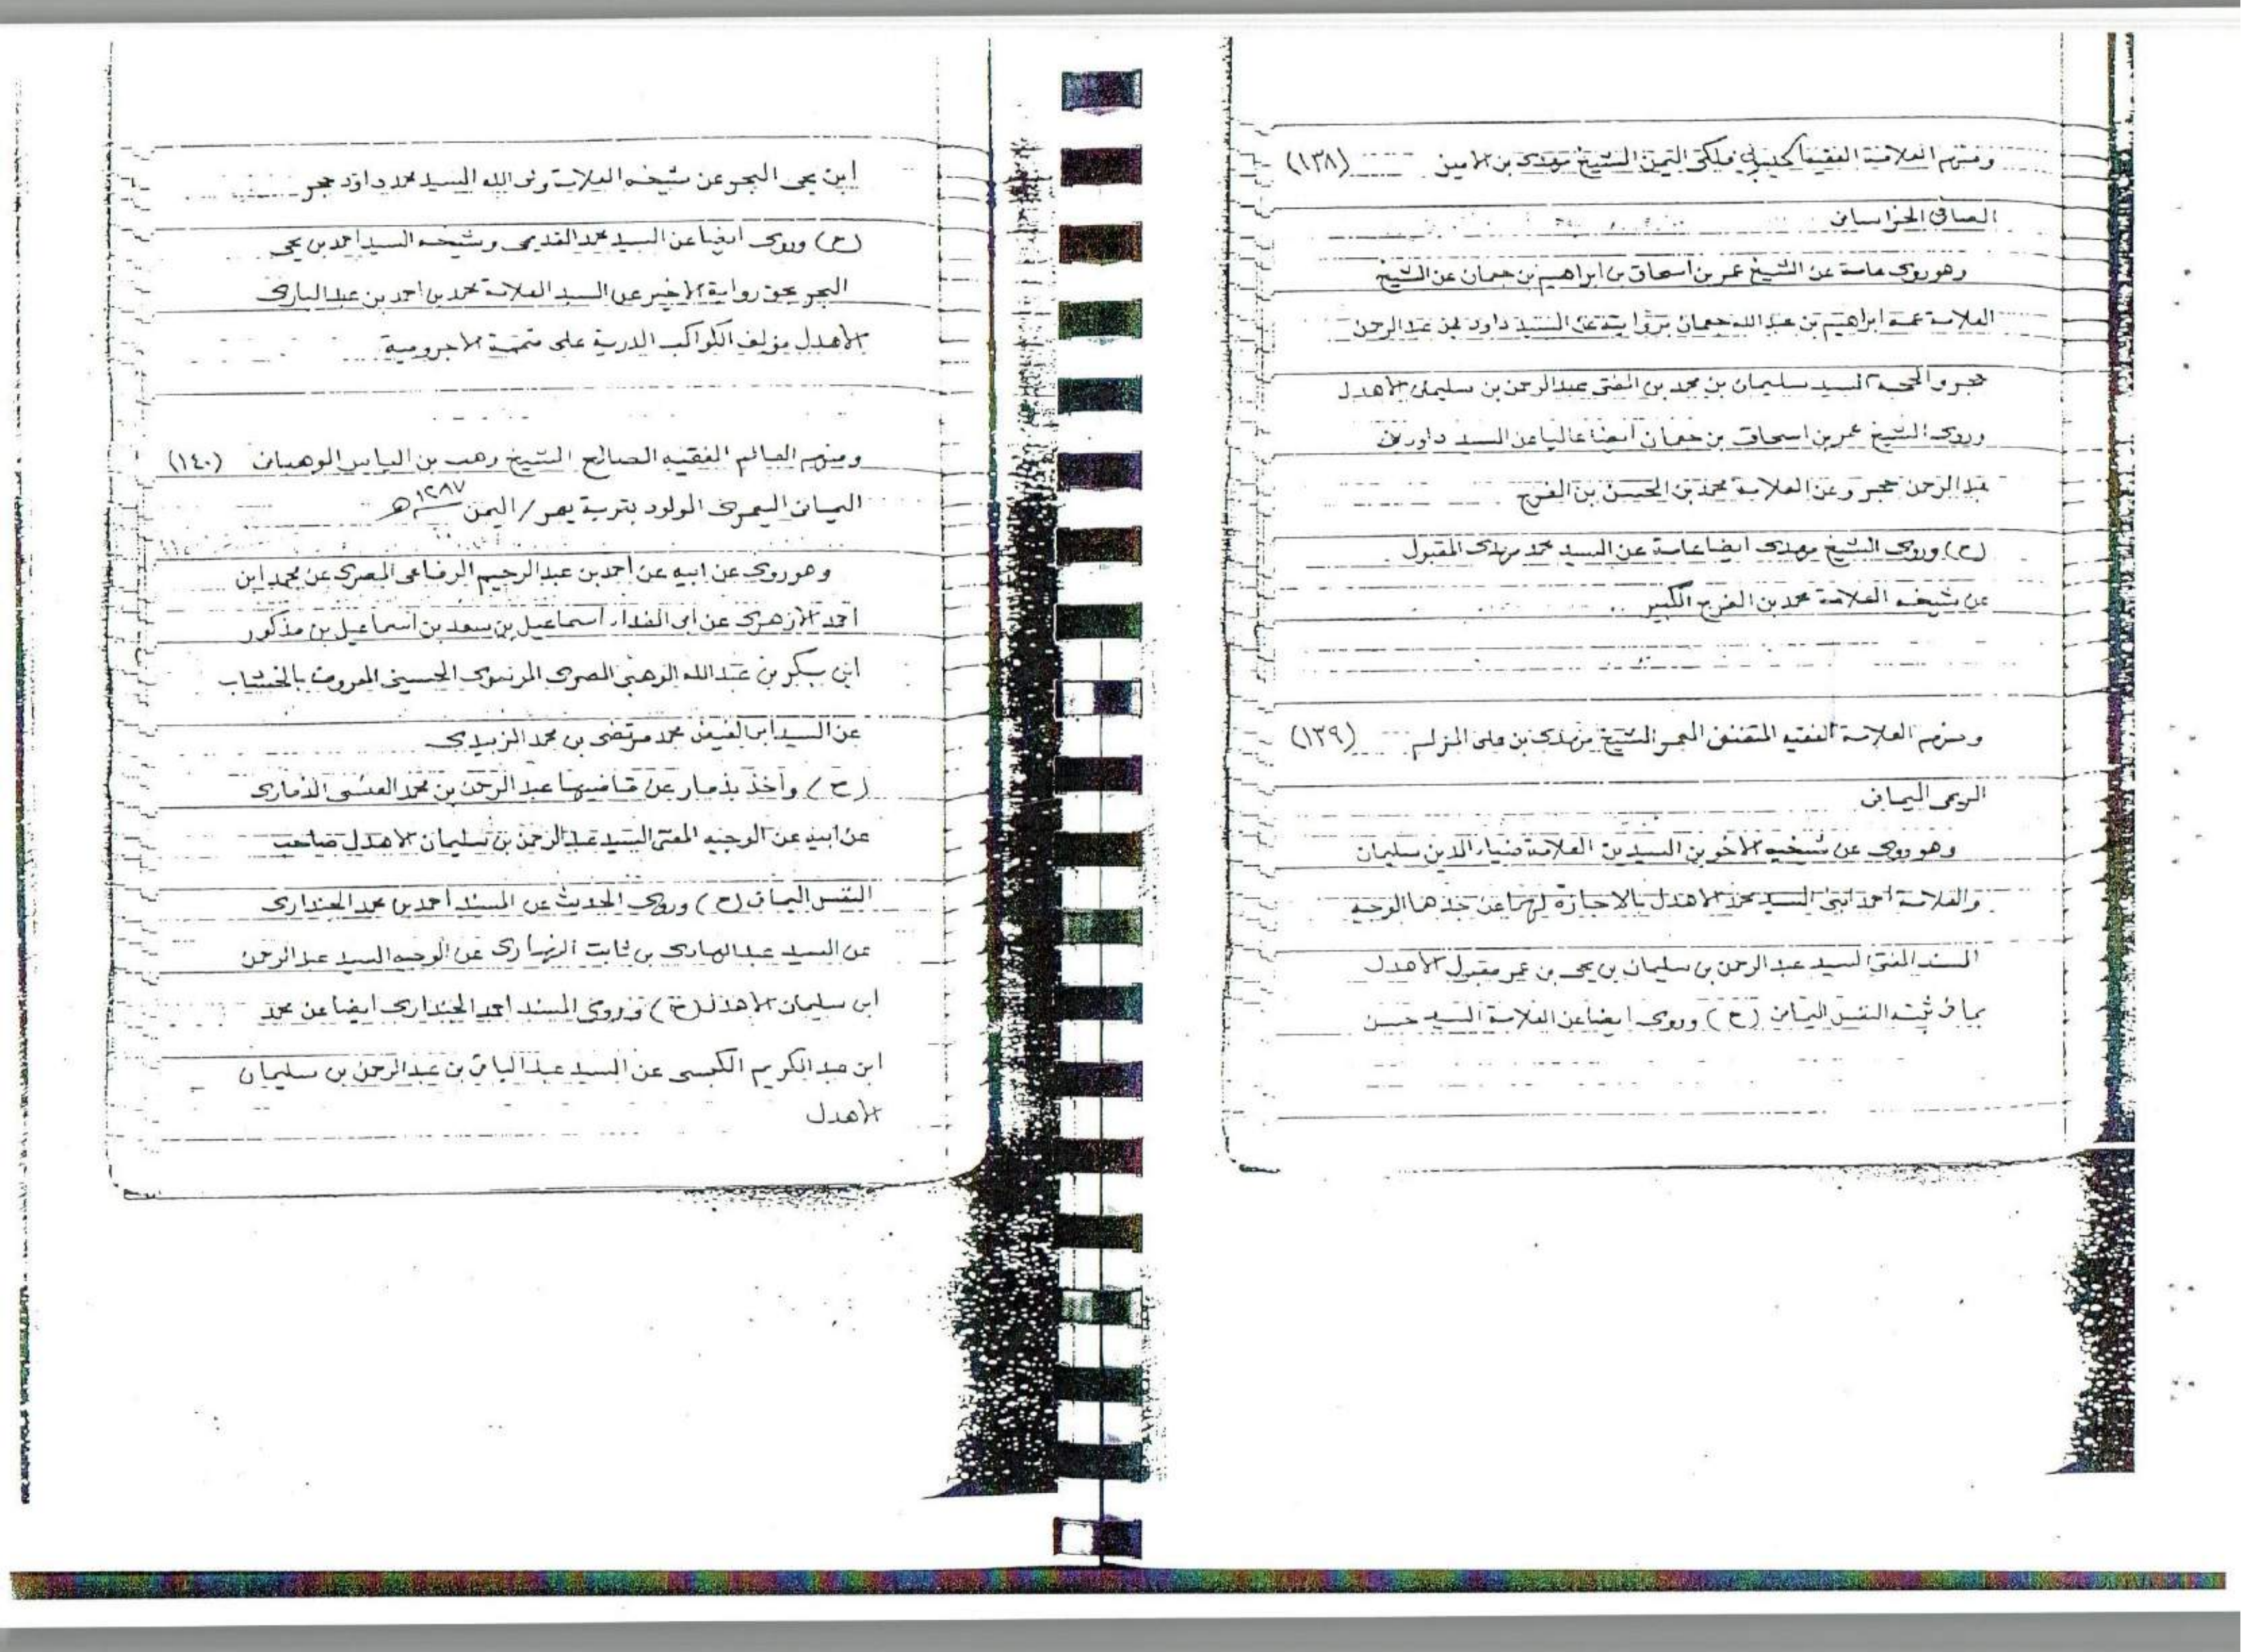 ومنهم العلامة الفقيه فلكي اليمن الشيخ مهدي بن الأمين (١٣٨)
الخراساني
وهو روى عامة عن الشيخ عمر بن اسحاق بن ابراهيم بن جعمان عن الشيخ
العلامة عمه ابراهيم بن عبد الله جعمان بروايته عن السيد داود بن عبد الرحمن
حجر والسيد سليمان بن محمد بن المفتى عبد الرحمن بن سليمان الأهدل
وروى الشيخ عمر بن اسحاق بن جعمان أيضا عاليا عن السيد داود بن
عبد الرحمن حجر وعن العلامة محمد بن الحسن بن الفرج
(ح) وروى الشيخ مهدى ايضا عامة عن السيد محمد مهدى المقبول
عن شيخه العلامة محمد بن الفرج الكبير
ومنهم العلامة الفقيه المتفنن المعمر الشيخ مهدى بن على (١٣٩)
الريمى اليمانى
وهو روى عن شيخيه الأخوين السيدين العلامة ضياء الدين سليمان
والعلامة احمد ابنى السيد محمد الأهدل بالاجازة لهما عن جدهما الوجيه
المسند المفتى السيد عبد الرحمن بن سليمان بن يحى بن عمر مقبول الأهدل
بما فى ثبته النفس اليمانى (ح) وروى ايضا عن العلامة السيد حسن
ابن يحى البحر عن شيخه العلامة السيد محمد داود حجر
(ح) وروى ايضا عن السيد محمد القديمى وشيخه السيد احمد بن يحى
البحر بحق رواية الأخير عن السيد العلامة محمد بن احمد بن عبد البارى
الأهدل مؤلف الكواكب الدرية على متممة الأجرومية
ومنهم العالم الفقيه الصالح الشيخ وهب بن الياس الوهبانى (١٤٠)
اليمانى المولود بقرية / اليمن ١٢٨٧ هـ
وهو روى عن ابيه عن أحمد بن عبد الرحيم الرفاعى المصرى عن محمد ابن
أحمد الأزهرى عن أبى الفداء اسماعيل بن سعد بن اسماعيل بن مذكور
ابن بكر بن عبد الله الوهبى المصرى الحسينى المعروف بالخشاب
عن السيد ابى الفيض محمد مرتضى بن محمد الزبيدى
(ح) وأخذ بذمار عن قاضيها عبد الرحمن بن محمد العنسى الذمارى
عن ابيه عن الوجيه المفتى السيد عبد الرحمن بن سليمان الأهدل صاحب
النفس اليمانى (ح) وروى الحديث عن المسند أحمد بن محمد الجندارى
عن السيد عبد الهادى بن ثابت النهارى عن الوجيه السيد عبد الرحمن
ابن سليمان الأهدل (ح) وروى المسند احمد الجندارى ايضا عن محمد
ابن عبد الكريم الكبسى عن السيد عبد الباقى بن عبد الرحمن بن سليمان
الأهدل